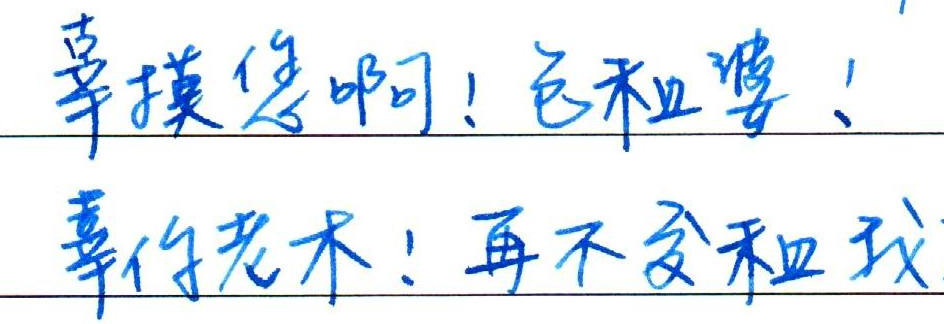 辜摸您啊！包租婆！
辜你老木！再不交租我